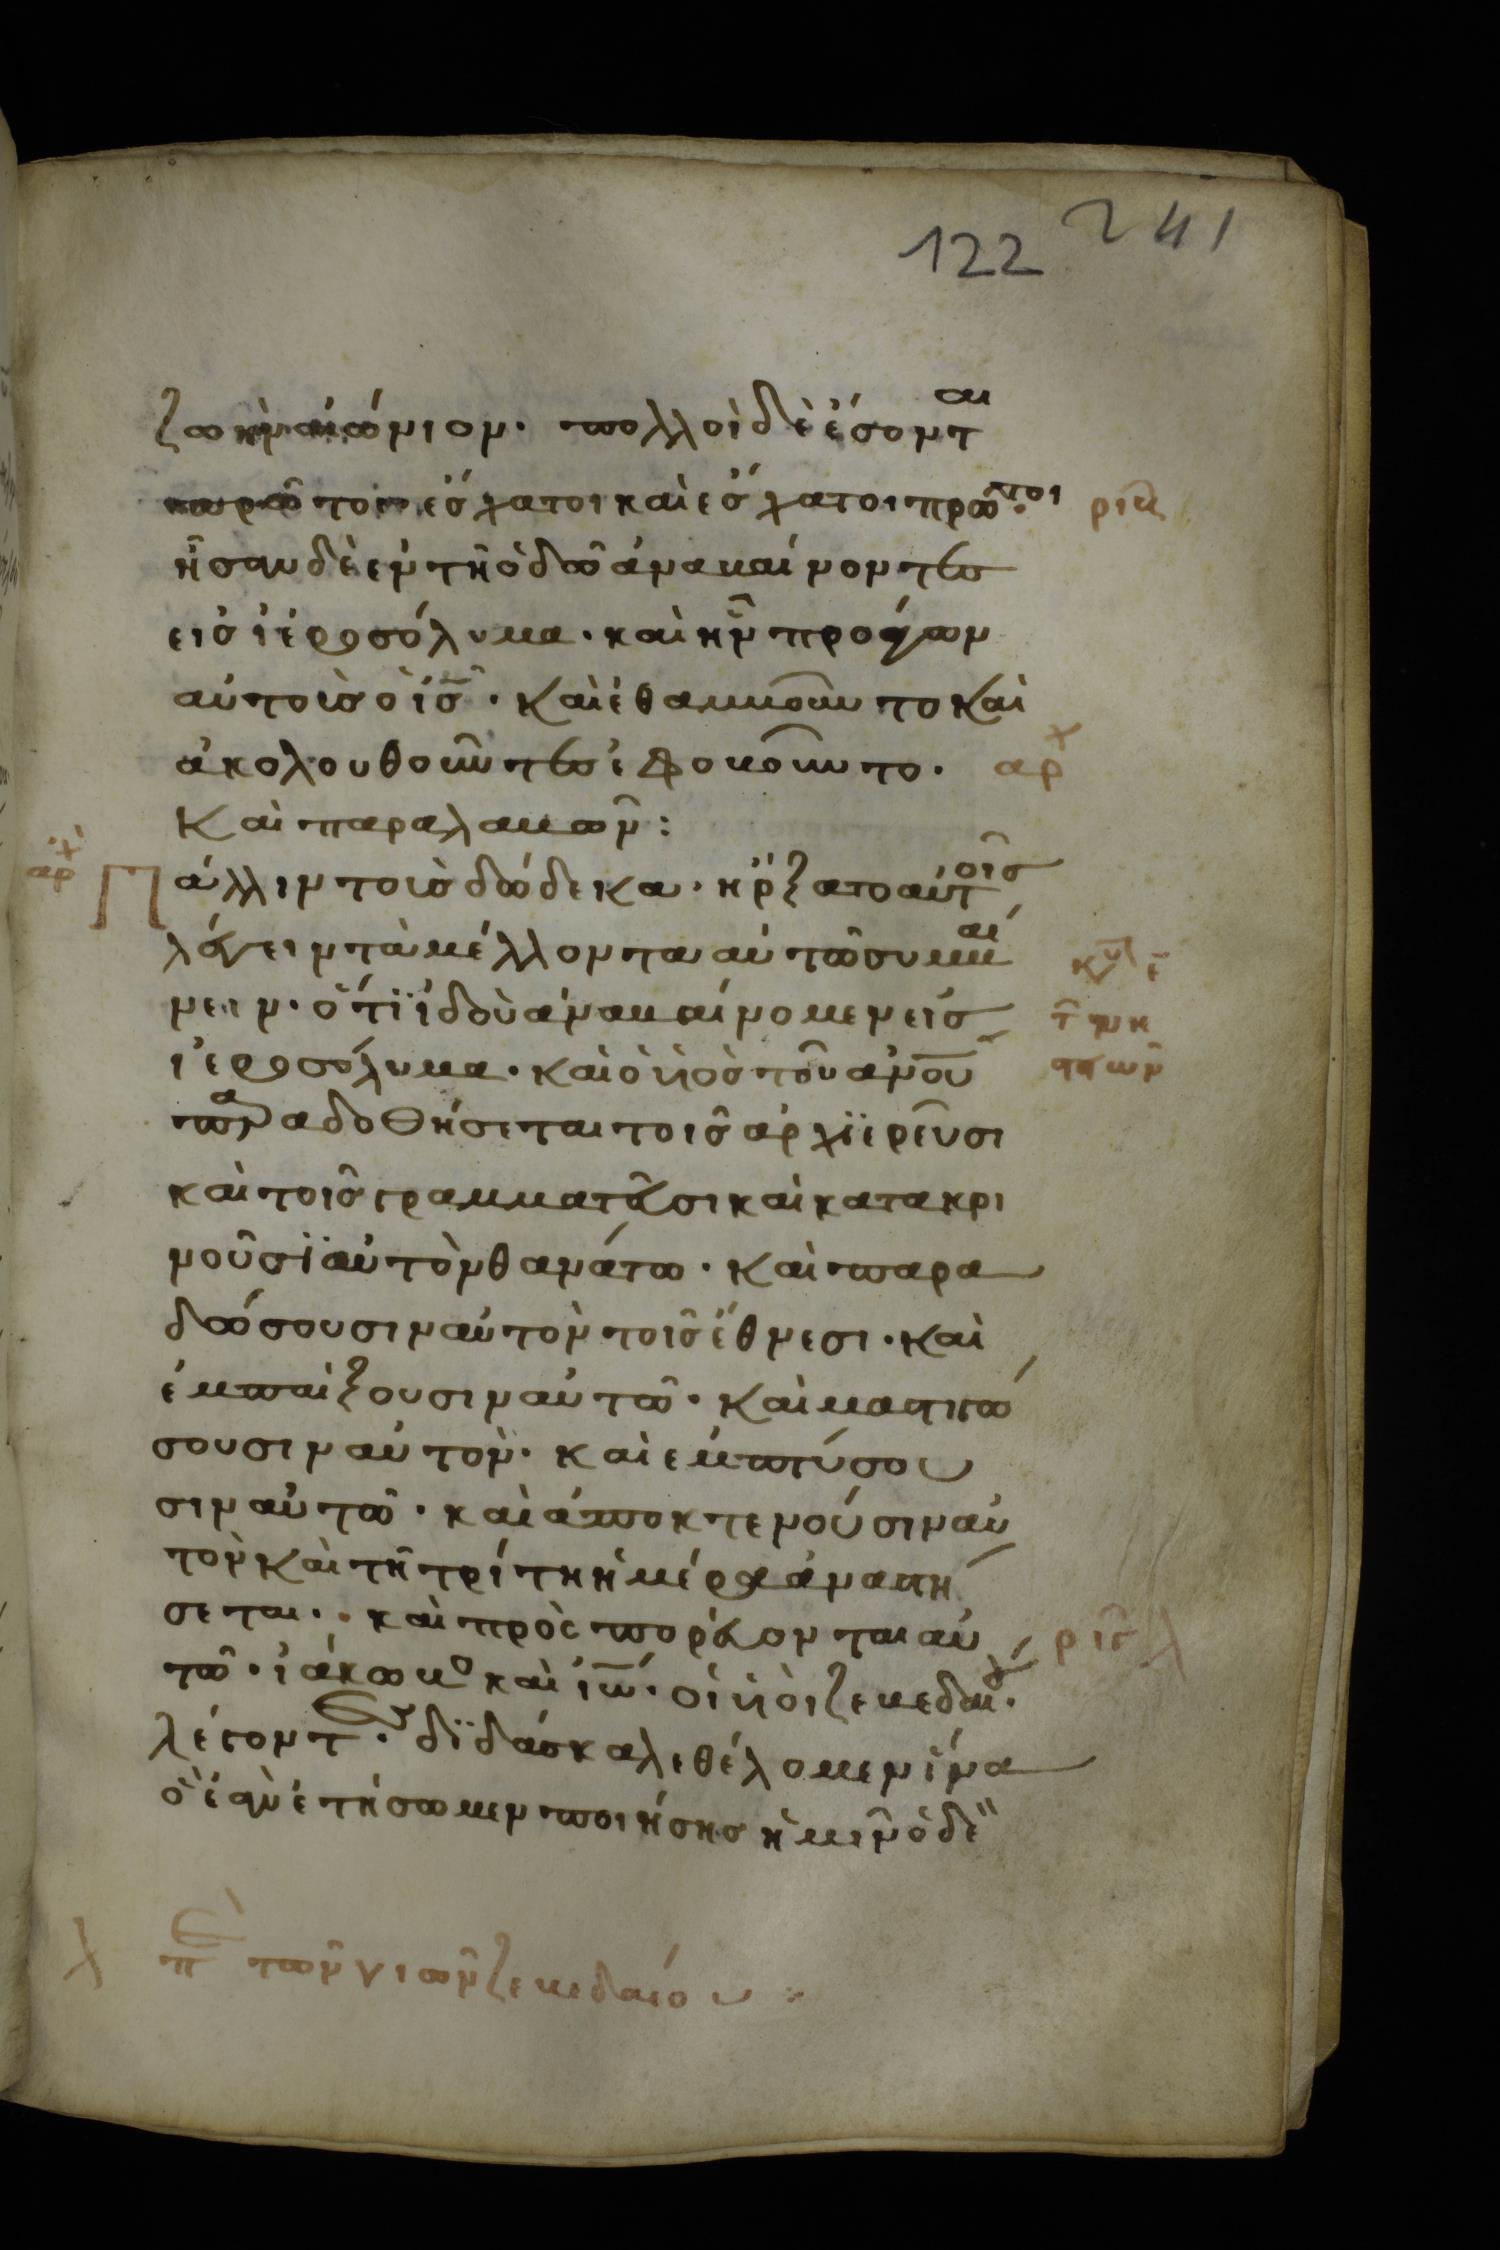 122 241
ζωὴν αἰώνιον· πολλοὶ δὲ ἔσονται
πρῶτοι ἔσχατοι καὶ ἔσχατοι πρῶτοι·
ἦσαν δὲ ἐν τῆ ὁδῶ ἀναβαίνοντες
εἰς ἱεροσόλυμα· καὶ ἦν προάγων
αὐτοὺς ὁ ις· καὶ ἐθαμβοῦντο καὶ
ἀκολουθοῦντες ἐφοβοῦντο· αρχ
Καὶ παραλαβὼν:
αρχ Πάλλιν τοὺς δώδεκα· ἤρξατο αὐτοῖς
λέγειν τὰ μέλλοντα αὐτῶ συμβαί
νειν· ὅτι ϊδοὺ ἀναβαίνομεν εἰς
ἱεροσόλυμα· καὶ ὁ υἱὸς τοῦ ανου
παραδοθήσεται τοῖς ἀρχϊερεῦσι
καὶ τοῖς γραμματεῦσι καὶ κατακρι
νοῦσϊ αὐτὸν θανάτω· καὶ παρα
δώσουσιν αὐτὸν τοῖς ἔθνεσι· καὶ
ἐμπαίξουσιν αὐτῶ· καὶ μαστιγώ
σουσιν αὐτὸν· καὶ ἐμπτύσου
σιν αὐτῶ· καὶ ἀποκτενοῦσιν αὐ
τὸν καὶ τῆ τρίτη ἡμέρα ἀναστή
σεται· καὶ προσπορεύονται αὐ
τῶ· ἰάκωβο καὶ ιω· οἱ υἱοὶ ζεβεδαίου·
λέγοντες· δϊδάσκαλε θέλομεν ἵνα
ὃ ἐὰν ἐτήσωμεν ποιήσης ἡμῖν ὁ δὲ
περὶ τῶν υἱῶν ζεβεδαίου